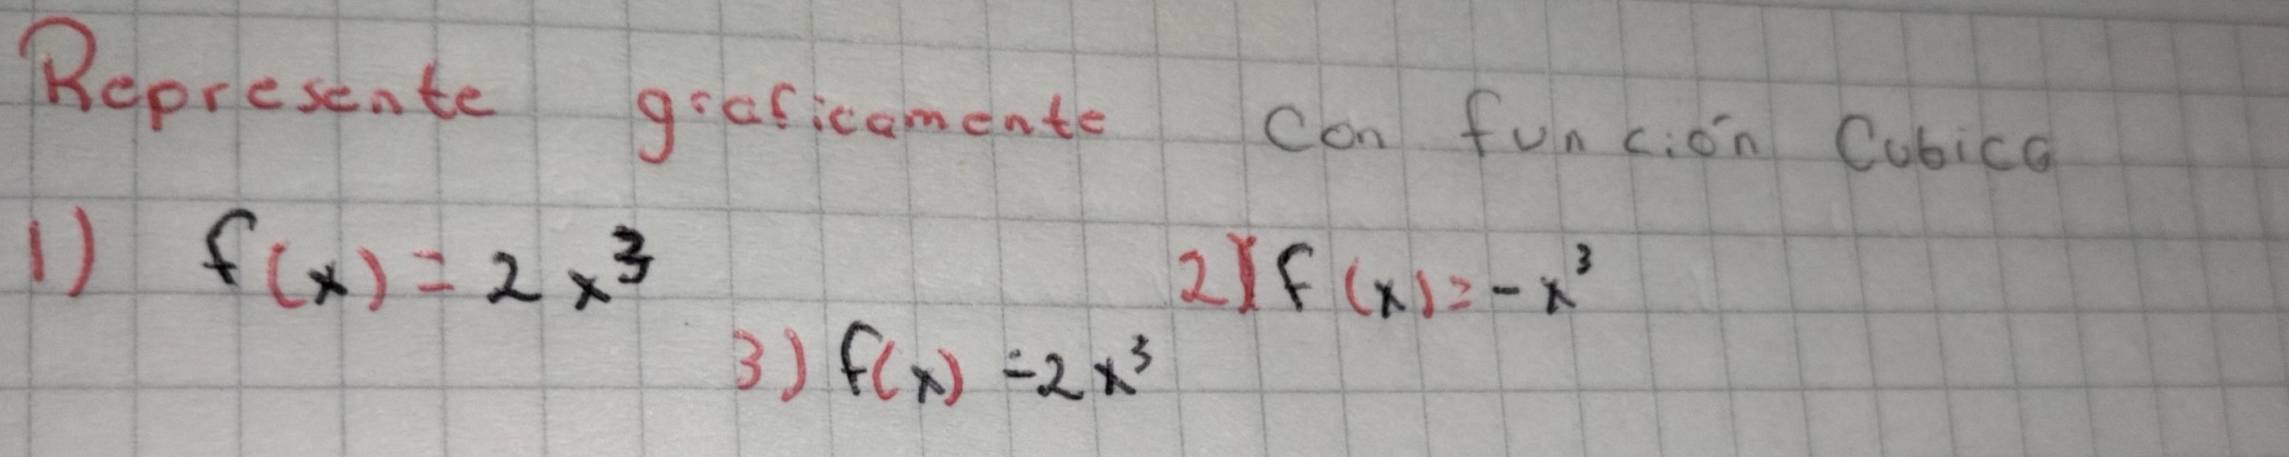 Represente graficamente con función Cubica
1) f(x) = 2x³
2) f(x) = -x³
3) f(x) = 2x³